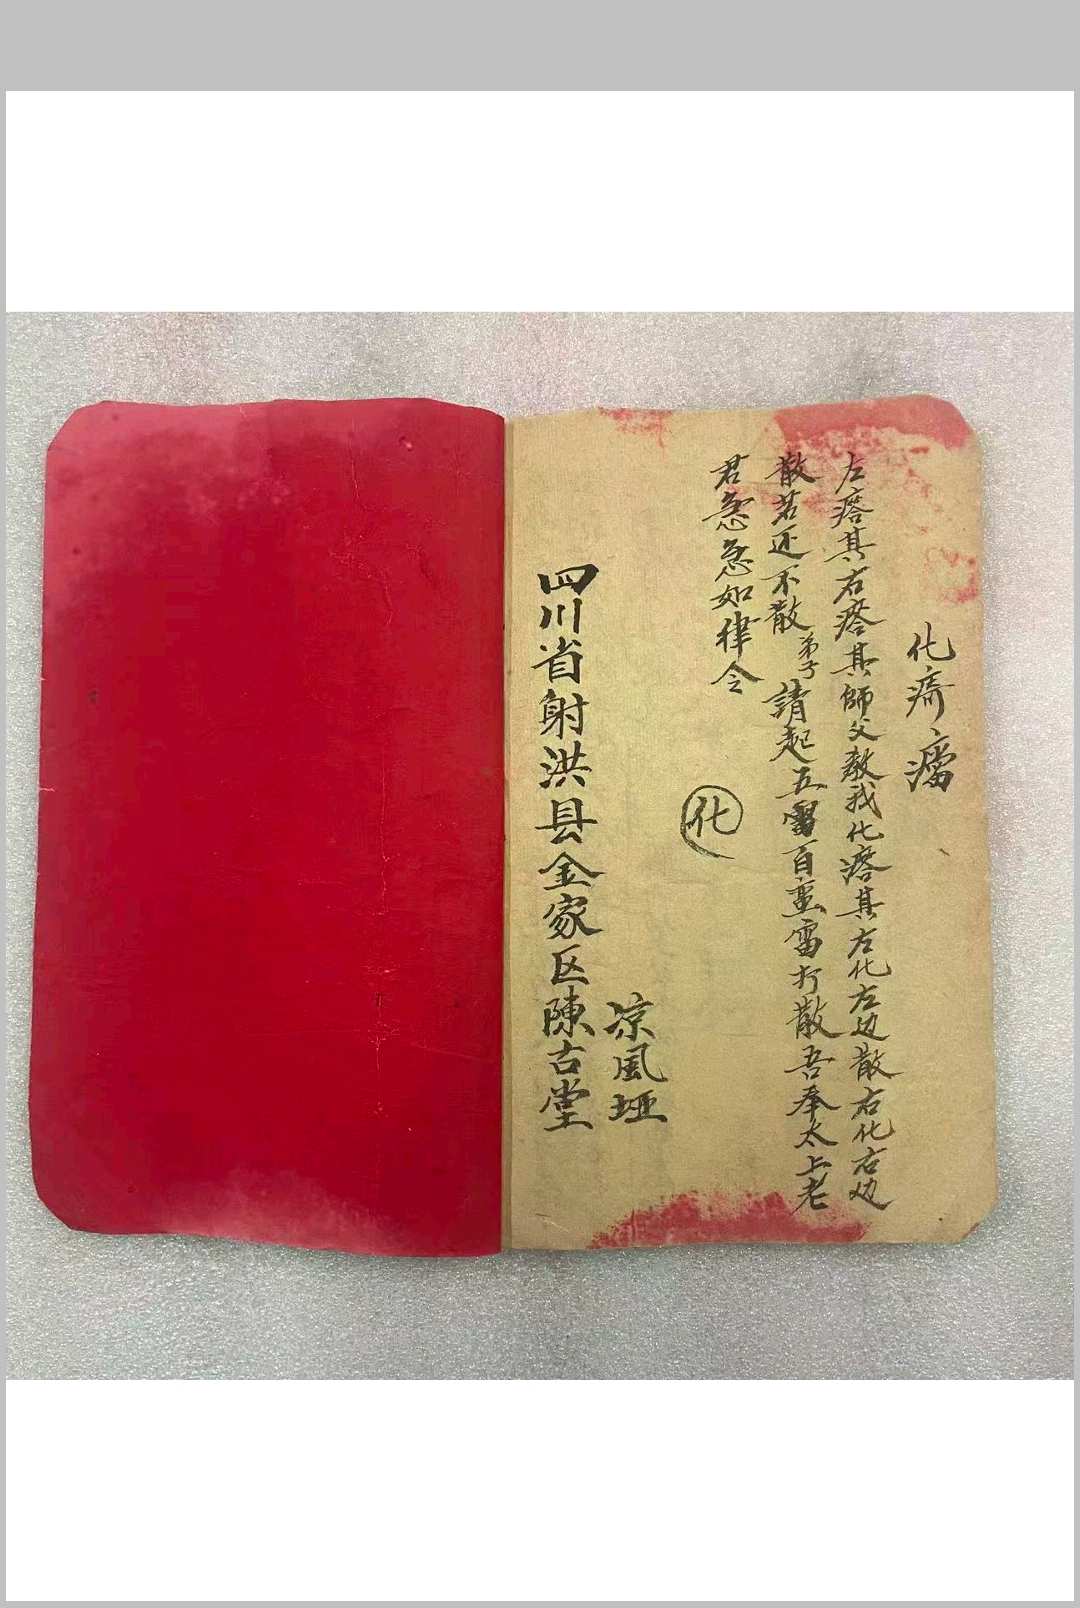 化疬、癅
左瘩其右瘩其師父教我化瘩其左化左边散右化右边
散若还不散弟子請起五雷百蛮雷打散吾奉太上老
君急急如律令
化
凉風埡
四川省射洪县金家区陳古堂